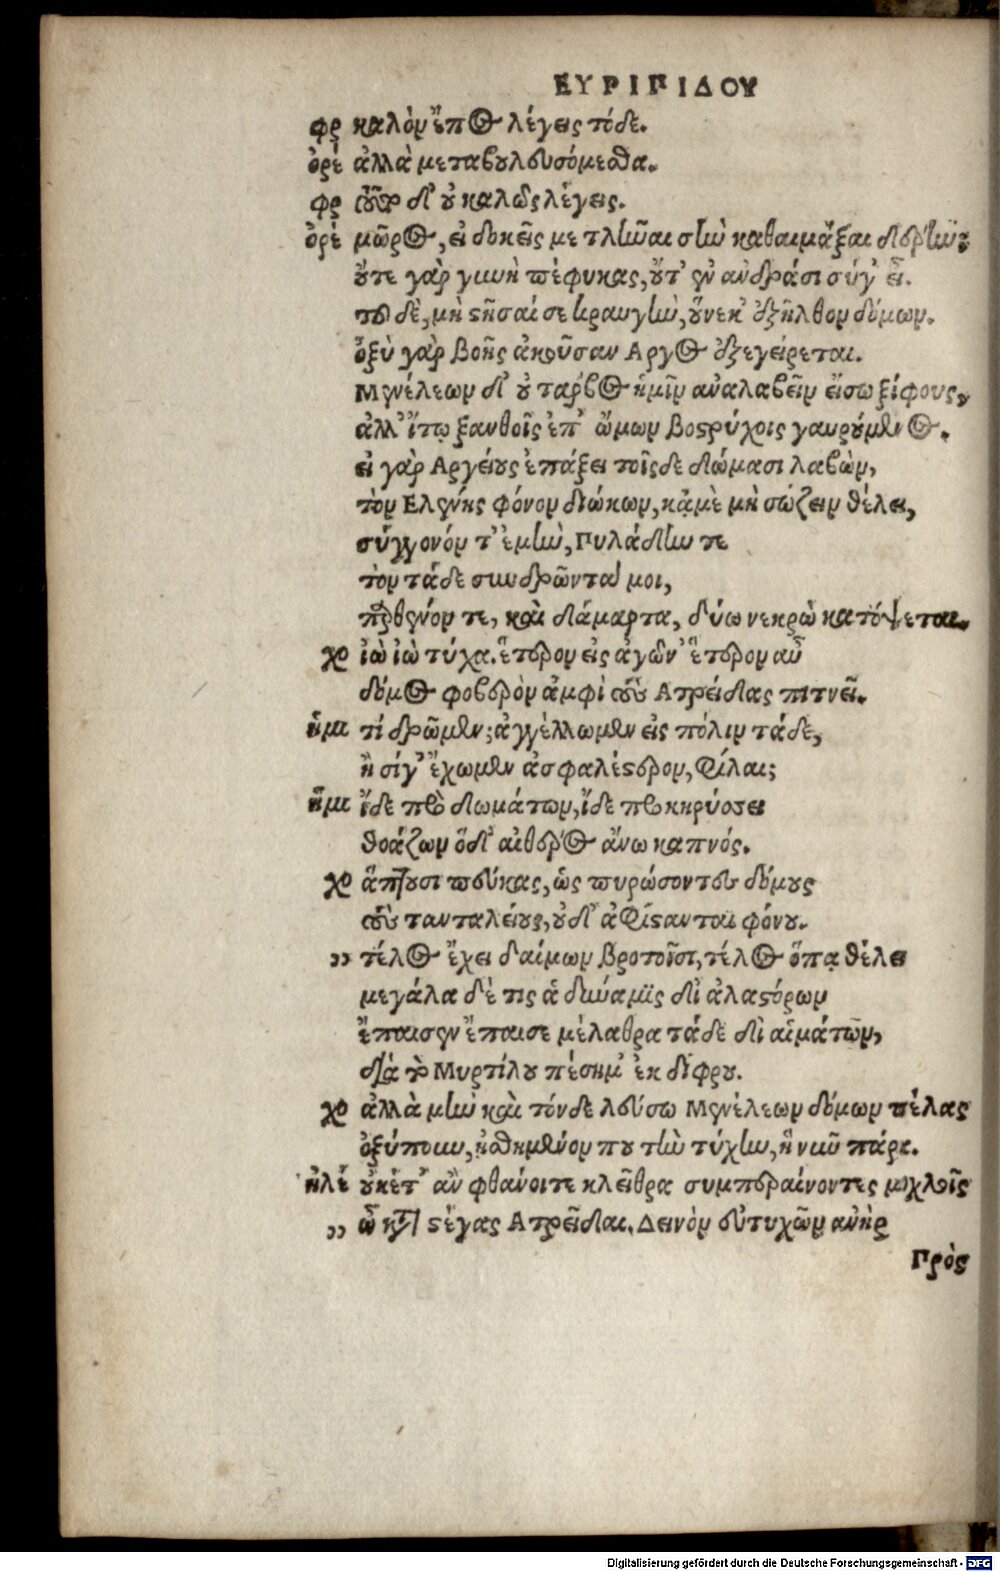 ΕΥΡΙΠΙΔΟΥ
φρ καλὸν ἔπος λέγεις τόδε.
ὀρέ ἀλλὰ μεταβουλευσόμεσθα.
φρ τοῦτο δ' οὐ καλῶς λέγεις.
ὀρέ μῶρος, εἰ δοκεῖς με τλῆναι σὴν καθαιμάξαι δέρην·
οὔτε γὰρ γυνὴ πέφυκας, οὔτ' ἐν ἀνδράσι σύγ' εἶ.
τοῦ δὲ, μὴ στῆσαί σε κραυγὴν, οὕνεκ' ἐξῆλθον δόμων.
ὀξὺ γὰρ βοῆς ἀκοῦσαν Αργος ἐξεγείρεται.
Μενέλεων δ' οὐ τάρβος ἡμῖν ἀναλαβεῖν εἴσω ξίφους,
ἀλλ' ἴτω ξανθοῖς ἐπ' ὤμων βοστρύχοις γαυρούμενος.
εἰ γὰρ Αργείους ἐπάξει τοῖσδε δώμασι λαβὼν,
τὸν Ελένης φόνον διώκων, κᾀμὲ μὴ σώζειν θέλει,
σύγγονόν τ' ἐμὴν, Πυλάδην τε
τὸν τάδε συνδρῶντά μοι,
παρθένον τε, καὶ δάμαρτα, δύω νεκρὼ κατόψεται.
χο ἰὼ ἰὼ τύχα. ἕτερον εἰς ἀγῶν' ἕτερον αὖ
δόμος φοβερὸν ἀμφὶ τοὺς Ατρείδας πιτνεῖ.
ἡμι τί δρῶμεν; ἀγγέλλωμεν εἰς πόλιν τάδε,
ἢ σίγ' ἔχωμεν ἀσφαλέστερον, φίλαι;
ἡμι ἴδε πρὸ δωμάτων, ἴδε προκηρύσσει
θοάζων ὅδ' αἰθέρος ἄνω καπνός.
χο ἅπτουσι πεύκας, ὡς πυρώσοντες δόμους
τοὺς τανταλείους, οὐδ' ἀφίστανται φόνου.
„ τέλος ἔχει δαίμων βροτοῖσι, τέλος ὅπᾳ θέλει
μεγάλα δέ τις ἁ δύναμις δι' ἀλαστόρων
ἔπαισεν ἔπαισε μέλαθρα τάδε δι' αἱμάτων,
διὰ τὸ Μυρτίλου πέσημ' ἐκ δίφρου.
χο ἀλλὰ μὴν καὶ τόνδε λεύσω Μενέλεων δόμων πέλας
ὀξύπουν, ᾐσθημένον που τὴν τύχην, ἣ νῦν πάρα.
ἠλέ οὐκέτ' ἂν φθάνοιτε κλεῖθρα συμπεραίνοντες μοχλοῖς
„ ὦ κατὰ στέγας Ατρεῖδαι. Δεινὸν εὐτυχῶν ἀνὴρ
Πρὸς
Digitalisierung gefördert durch die Deutsche Forschungsgemeinschaft - DFG